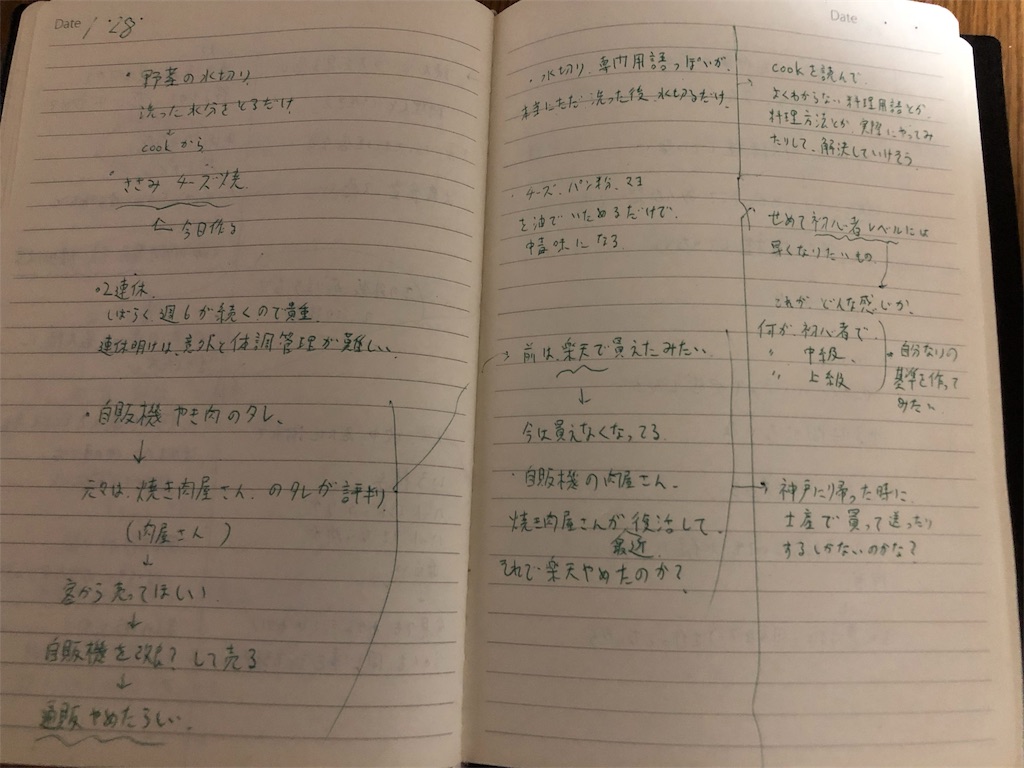 Date 1・28
・野菜の水切り
洗った水分をとるだけ
↓
cookから
・ささみ チーズ焼
← 今日作る
・2連休、
しばらく週6が続くので貴重
連休明けは、意欲と体調管理が難しい。
・自販機 やき肉のタレ、
↓
元々は、焼き肉屋さん、のタレが評判
(肉屋さん)
↓
客から売ってほしい
↓
自販機を改良?して売る
↓
通販やめたらしい。
・水切り、専門用語っぽいが、
本当にただ洗った後、水切るだけ
・チーズ、パン粉、マヨ
を油でいためるだけで、
味になる
前は、楽天で買えたみたい。
↓
今は買えなくなってる
・自販機の肉屋さん、
焼き肉屋さんが復活して、
最近
それで楽天やめたのか?
Date ・ ・
cookを読んで、
よくわからない料理用語とか、
料理方法とか、実際にやってみ
たりして、解決していけそう
せめて初心者レベルには
早くなりたいもの
↓
これが、どんな感じか、
何が、初心者で、
〃 中級、
〃 上級
・自分なりの
基準を作って
みたい
→ 神戸に帰った時に、
土産で買って送ったり
するしかないのかな?